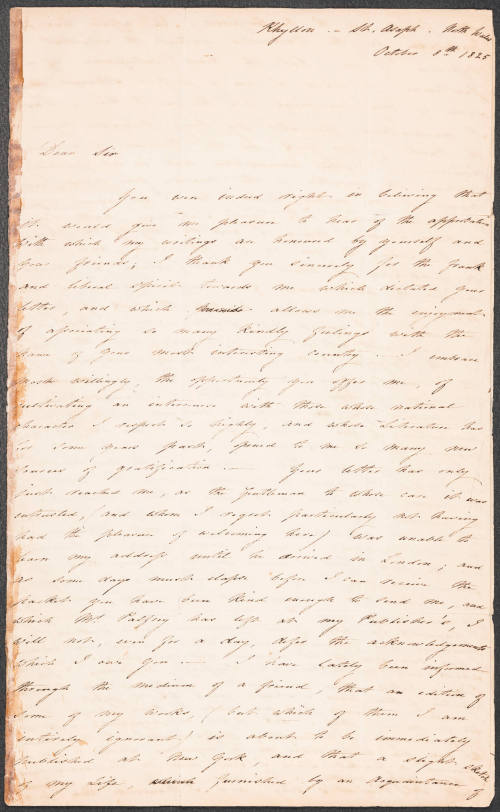 Rhyllon - St. Asaph - North Wales
October 8th 1825
Dear Sir
You were indeed right in believing that
it would give me pleasure to hear of the approbation
with which my writings are honoured by yourself and
your friends; I thank you sincerely for the frank
and liberal spirit towards me which dictated your
letter, and which allows me the enjoyment
of associating so many kindly feelings with the
name of your most interesting country. I embrace
most willingly, the opportunity you offer me, of
cultivating an intercourse with those whose national
character I respect so highly, and whose Literature has
for some years past, opened to me so many new
sources of gratification — Your letter has only
just reached me, as the Gentleman to whose care it was
entrusted, (and whom I regret particularly not having
had the pleasure of welcoming here) was unable to
learn my address until he arrived in London; and
as some days must elapse before I can receive the
packet you have been kind enough to send me, and
which Mr Palfrey has left at my Publisher's, I
will not, even for a day, defer the acknowledgements
which I owe you — I have lately been informed
through the medium of a friend, that an edition of
some of my works, (but which of them I am
entirely ignorant) is about to be immediately
published at New York, and that a slight sketch
of my Life, furnished by an acquaintance of